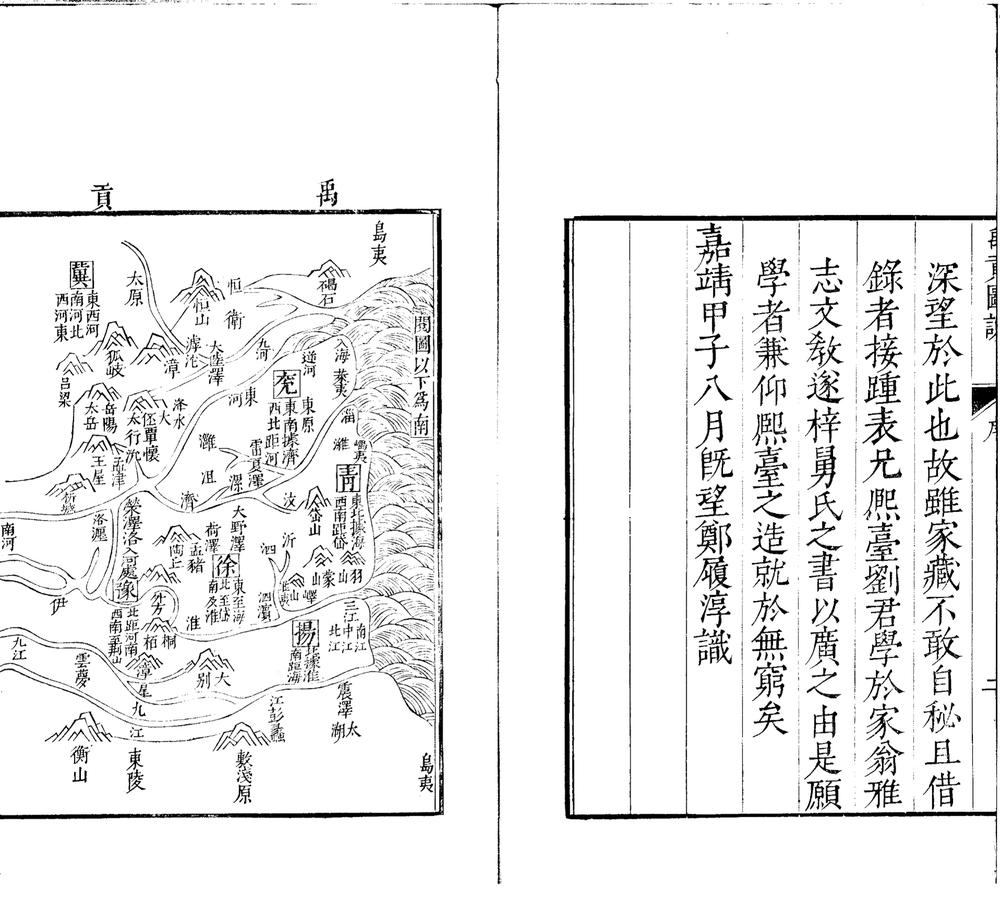 禹貢圖說
序
二
深望於此也故雖家藏不敢自秘且借
錄者接踵表兄熙臺劉君學於家翁雅
志文敎遂梓舅氏之書以廣之由是願
學者兼仰熙臺之造就於無窮矣
嘉靖甲子八月旣望鄭履淳識
禹
貢
閱圖以下爲南
島夷
碣石
恒
衛
恒山
太原
冀
東西河
南河北
西河東
狐岐
呂梁
漳
滹沱
大陸澤
九河
逆河
入海
萊夷
兗
東南據濟
西北距河
東原
東河
雷夏澤
灉
沮
漯
濟
汶
淄
濰
嵎夷
青
東北據海
西南距岱
岱山
岳陽
太岳
太行
覃懷
王屋
孟津
析城
洛
瀍
滎澤
洛入河處
南河
伊
豫
北距河南
西南至荆山
外方
桐
栢
淮
陶丘
荷澤
孟豬
大野澤
徐
東至海
北至岱
南及淮
泗
沂
泗濱
嶧山
蒙山
羽山
揚
北據淮
南距海
三江
南江
中江
北江
震澤
太湖
江
彭蠡
大別
敷淺原
九江
雲夢
衡山
九江
東陵
島夷